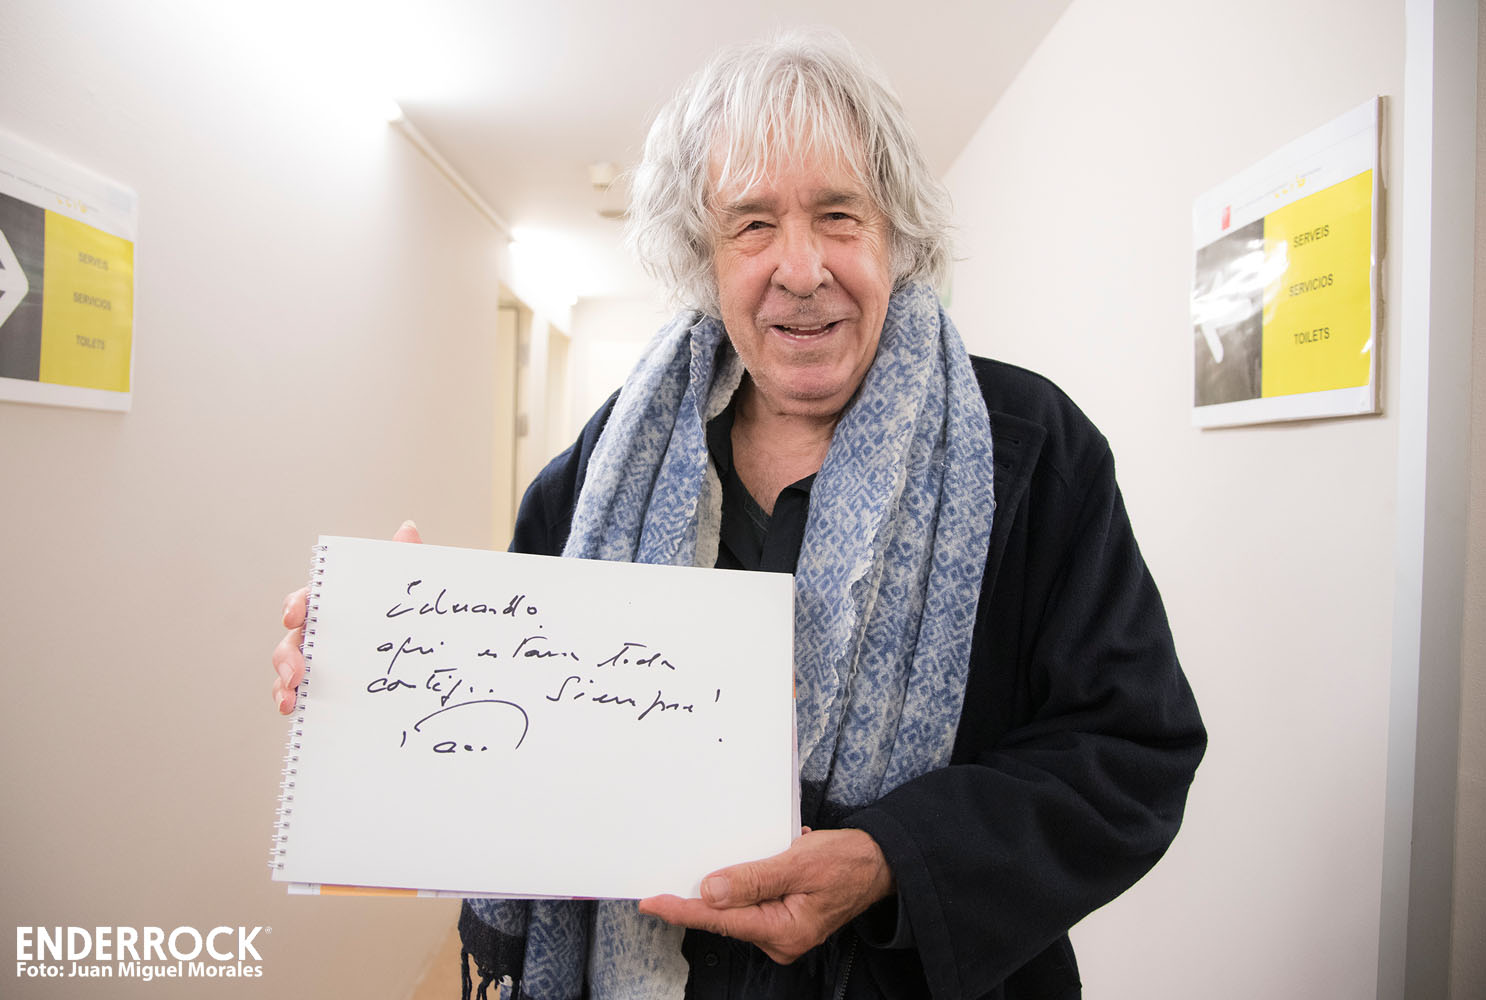 SERVEIS
SERVICIOS
TOILETS
SERVEIS
SERVICIOS
TOILETS
Eduardo.
toda
contigo.. Siempre!
ENDERROCK
Foto: Juan Miguel Morales